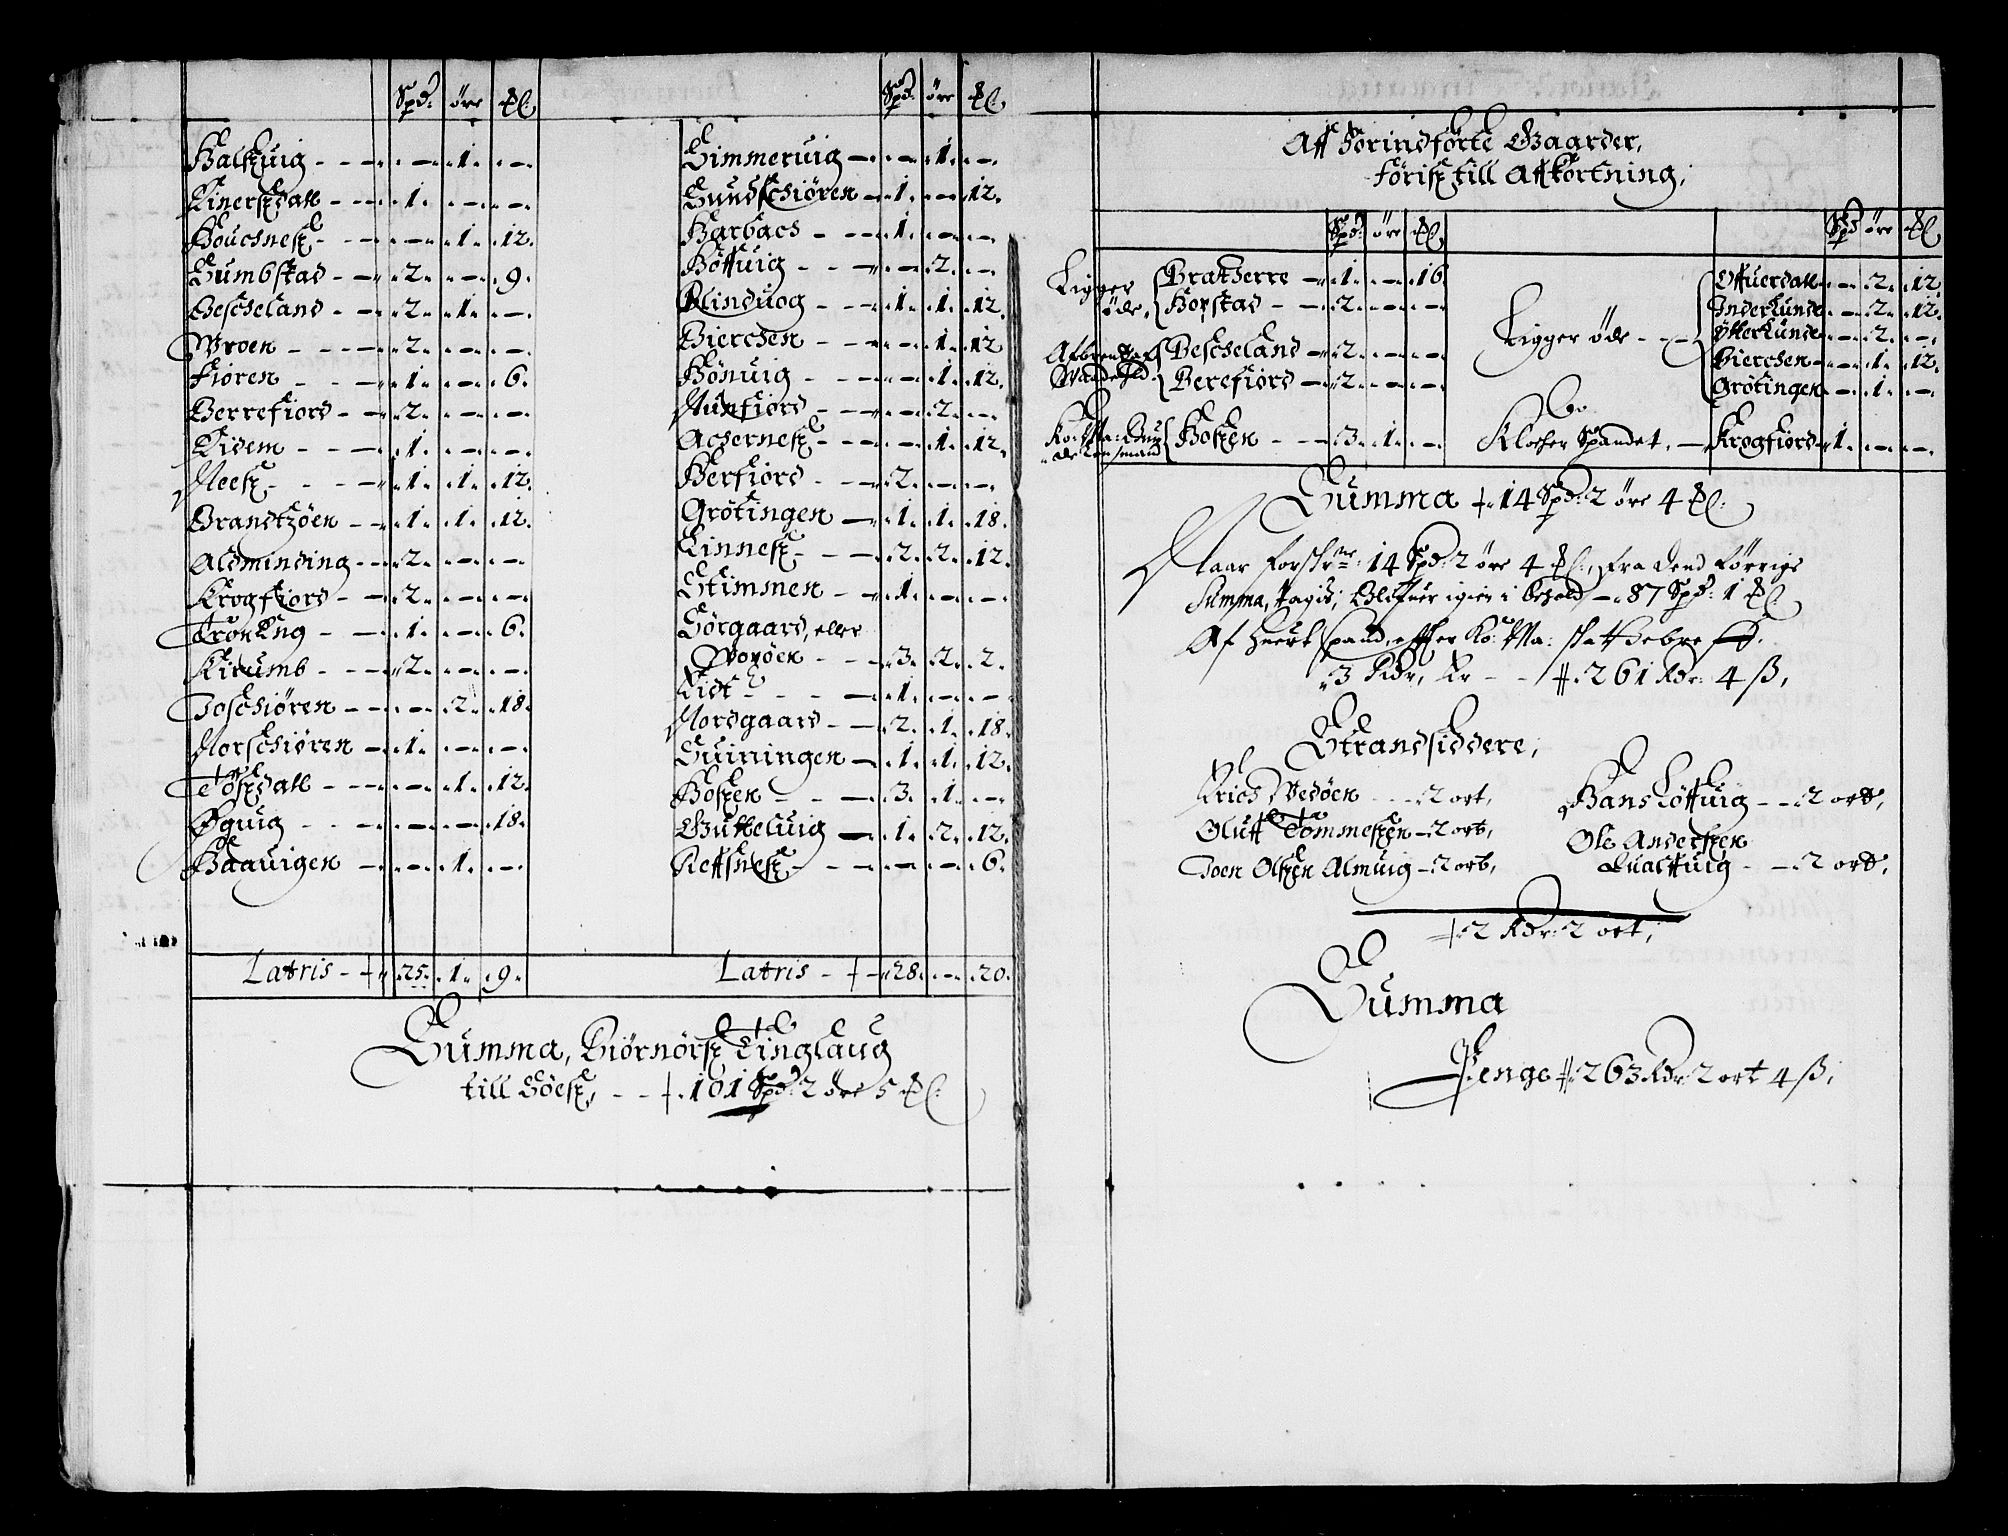 Spd: öre ℔:
Halsuig - - - 1 -
Einersdall - - 1 - -
Houchnes - - - 1 12
Sumbstad - - 2 - 9
Bescheland - - 2 1 -
Wroen - - - 2 - -
Fioren - - - 1 - 6
Berrefiord - - 2 - -
Eidem - - - 1 - -
Nees - - - 1 1 12
Brandtzöen - - 1 1 12
Aldminding - - 2 - -
Krogfiord - - 2 - -
Trönling - - 1 - 6
Kirumb - - 2 - -
Joschiören - - - 2 18
Norschiören - 1 - -
Tösdall - - - 1 12
Øguig - - - - 18
Haauigen - - - 1 -
Latris - 25 1 9
Spd: öre ℔:
Simmeruig - - 1 -
Sundschiören - 1 - 12
Harbach - - 1 - -
Höffuig - - - 2 -
Blinduog - - 1 1 12
Bierchen - - - 1 12
Hönuig - - - 1 12
Nunfiord - - - 2 -
Achernes - - - 1 12
Berfiord - - 2 - -
Grötingen - 1 1 18
Linnes - - 2 2 12
Stimmen - - 1 - -
Sörgaard, eller
Woxöen - - 3 2 2
Eidt - - - 1 - -
Nordgaard - - 2 1 18
Suiningen - 1 1 12
Hossen - - - 3 1 -
Gutteluig - 1 2 12
Reffsnes - - - - 6
Latris - 28 - 20
Summa, Biörnörs Tinglaug
till Söes, - - 101 Spd: 2 öre 5 ℔:
Aff Forindförte Gaarder,
Föris till Affkortning,
Spd: öre ℔:
Ligger öde, Bratherre - 1 - 16
Hopstad - - 2 - -
Bescheland - 2 - -
Berefiord - 2 - -
Hossen - - 3 1 -
Spd öre ℔:
Ligger öde - - Offuerdall - - 2 12
Inderlunde - - 2 12
Ytterlunde - - 2 -
Bierchen - - 1 12
Grötingen - - 1 -
Klocher Spandet, - Krogfiord 1 - -
Summa 14 Spd: 2 öre 4 ℔:
Naar forschr:ne 14 Spd: 2 öre 4 ℔:, fra dend förrige
Summa, tagis, Blifuer igien i behold - 87 Spd: 1 ℔:
Af huert spand, effter Ko: Ma: skatt
3 Rdr, Er - - 261 Rdr: 4 ß,
Strandsiddere,
Erich Wedöen - - 2 ort,
Oluff Tommesen - 2 ort,
Joen Olsen Almuig - 2 ort,
Hans Löffuig - - 2 ort,
Ole Andersen
Qualffuig - - 2 ort,
2 Rdr: 2 ort,
Summa
Penge 263 Rdr: 2 ort 4 ß,